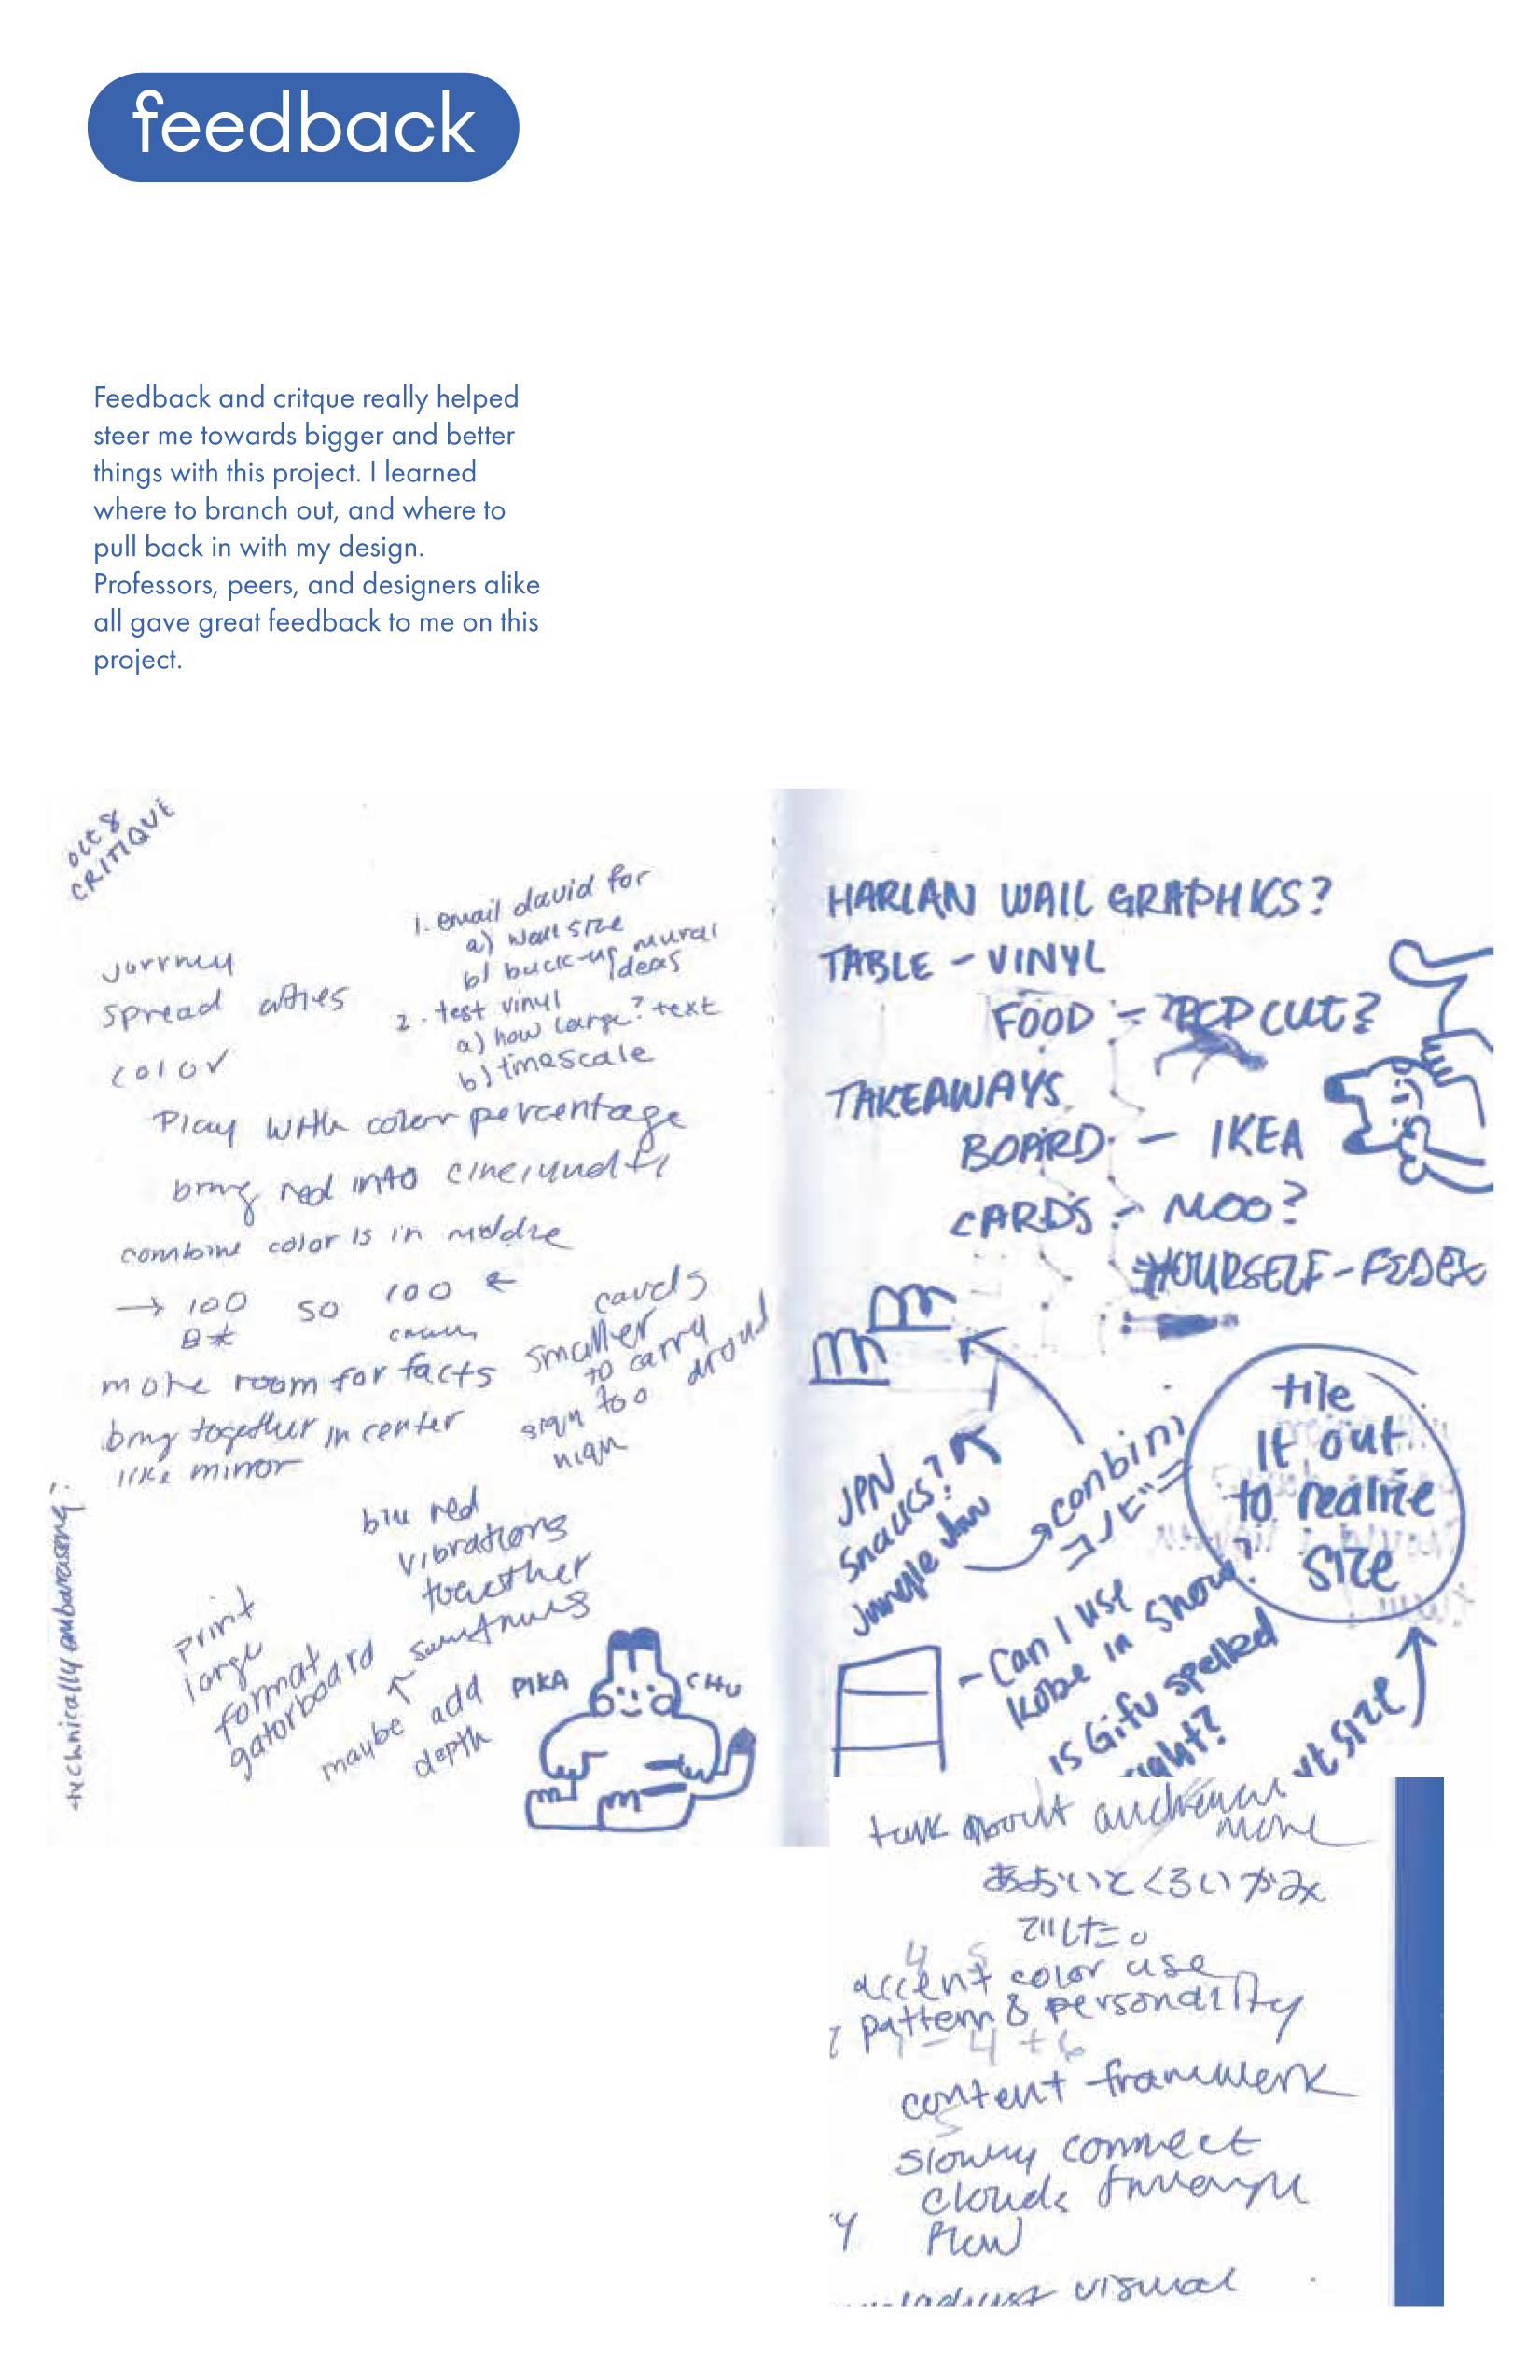 feedback
Feedback and critque really helped
steer me towards bigger and better
things with this project. I learned
where to branch out, and where to
pull back in with my design.
Professors, peers, and designers alike
all gave great feedback to me on this
project.
oct 8
CRITIQUE
journey
spread
color
1. email david for
a) wall size
b) back-up mural
ideas
2. test vinyl
a) how large? text
b)
Play with color percentage
bring red into
combine color is in middle
→ 100 50 100 ←
more room for facts
bring together in center
like mirror
cards
smaller
to carry
around
sign too
high
blue red
vibrations
together
sometimes
print
large
format
gatorboard
maybe add
depth
technically
PIKA CHU
HARLAN WALL GRAPHICS?
TABLE - VINYL
FOOD - POP CUT?
TAKEAWAYS
BOARD - IKEA
CARDS - MOO?
YOURSELF - FEDEX
JPN
snacks?
Jungle Jim
combini
コンビニ
tile
it out
to realize
size
- Can I use
Kobe in show?
is Gifu spelled
right?
size
talk about
more
あおいとくろいかみ
でした。
4 5
accent color use
pattern & personality
- 4 + 6
content framework
slowly connect
clouds through
flow
visual